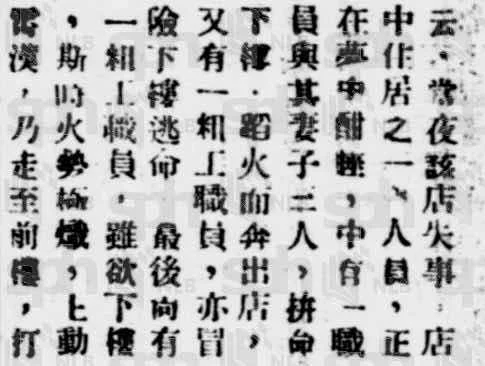 云·當夜該店失事·店
中住居之一、人員，正
在夢中酣睡，中有一職
員與其妻子二人，拚命
下樓·蹈火而奔出店，
又有一粗工職員，亦冒
險下樓逃命　最後向有
一粗工職員，雖欲下樓
，斯時火勢極熾，上動
霄漢，乃走至前樓，打